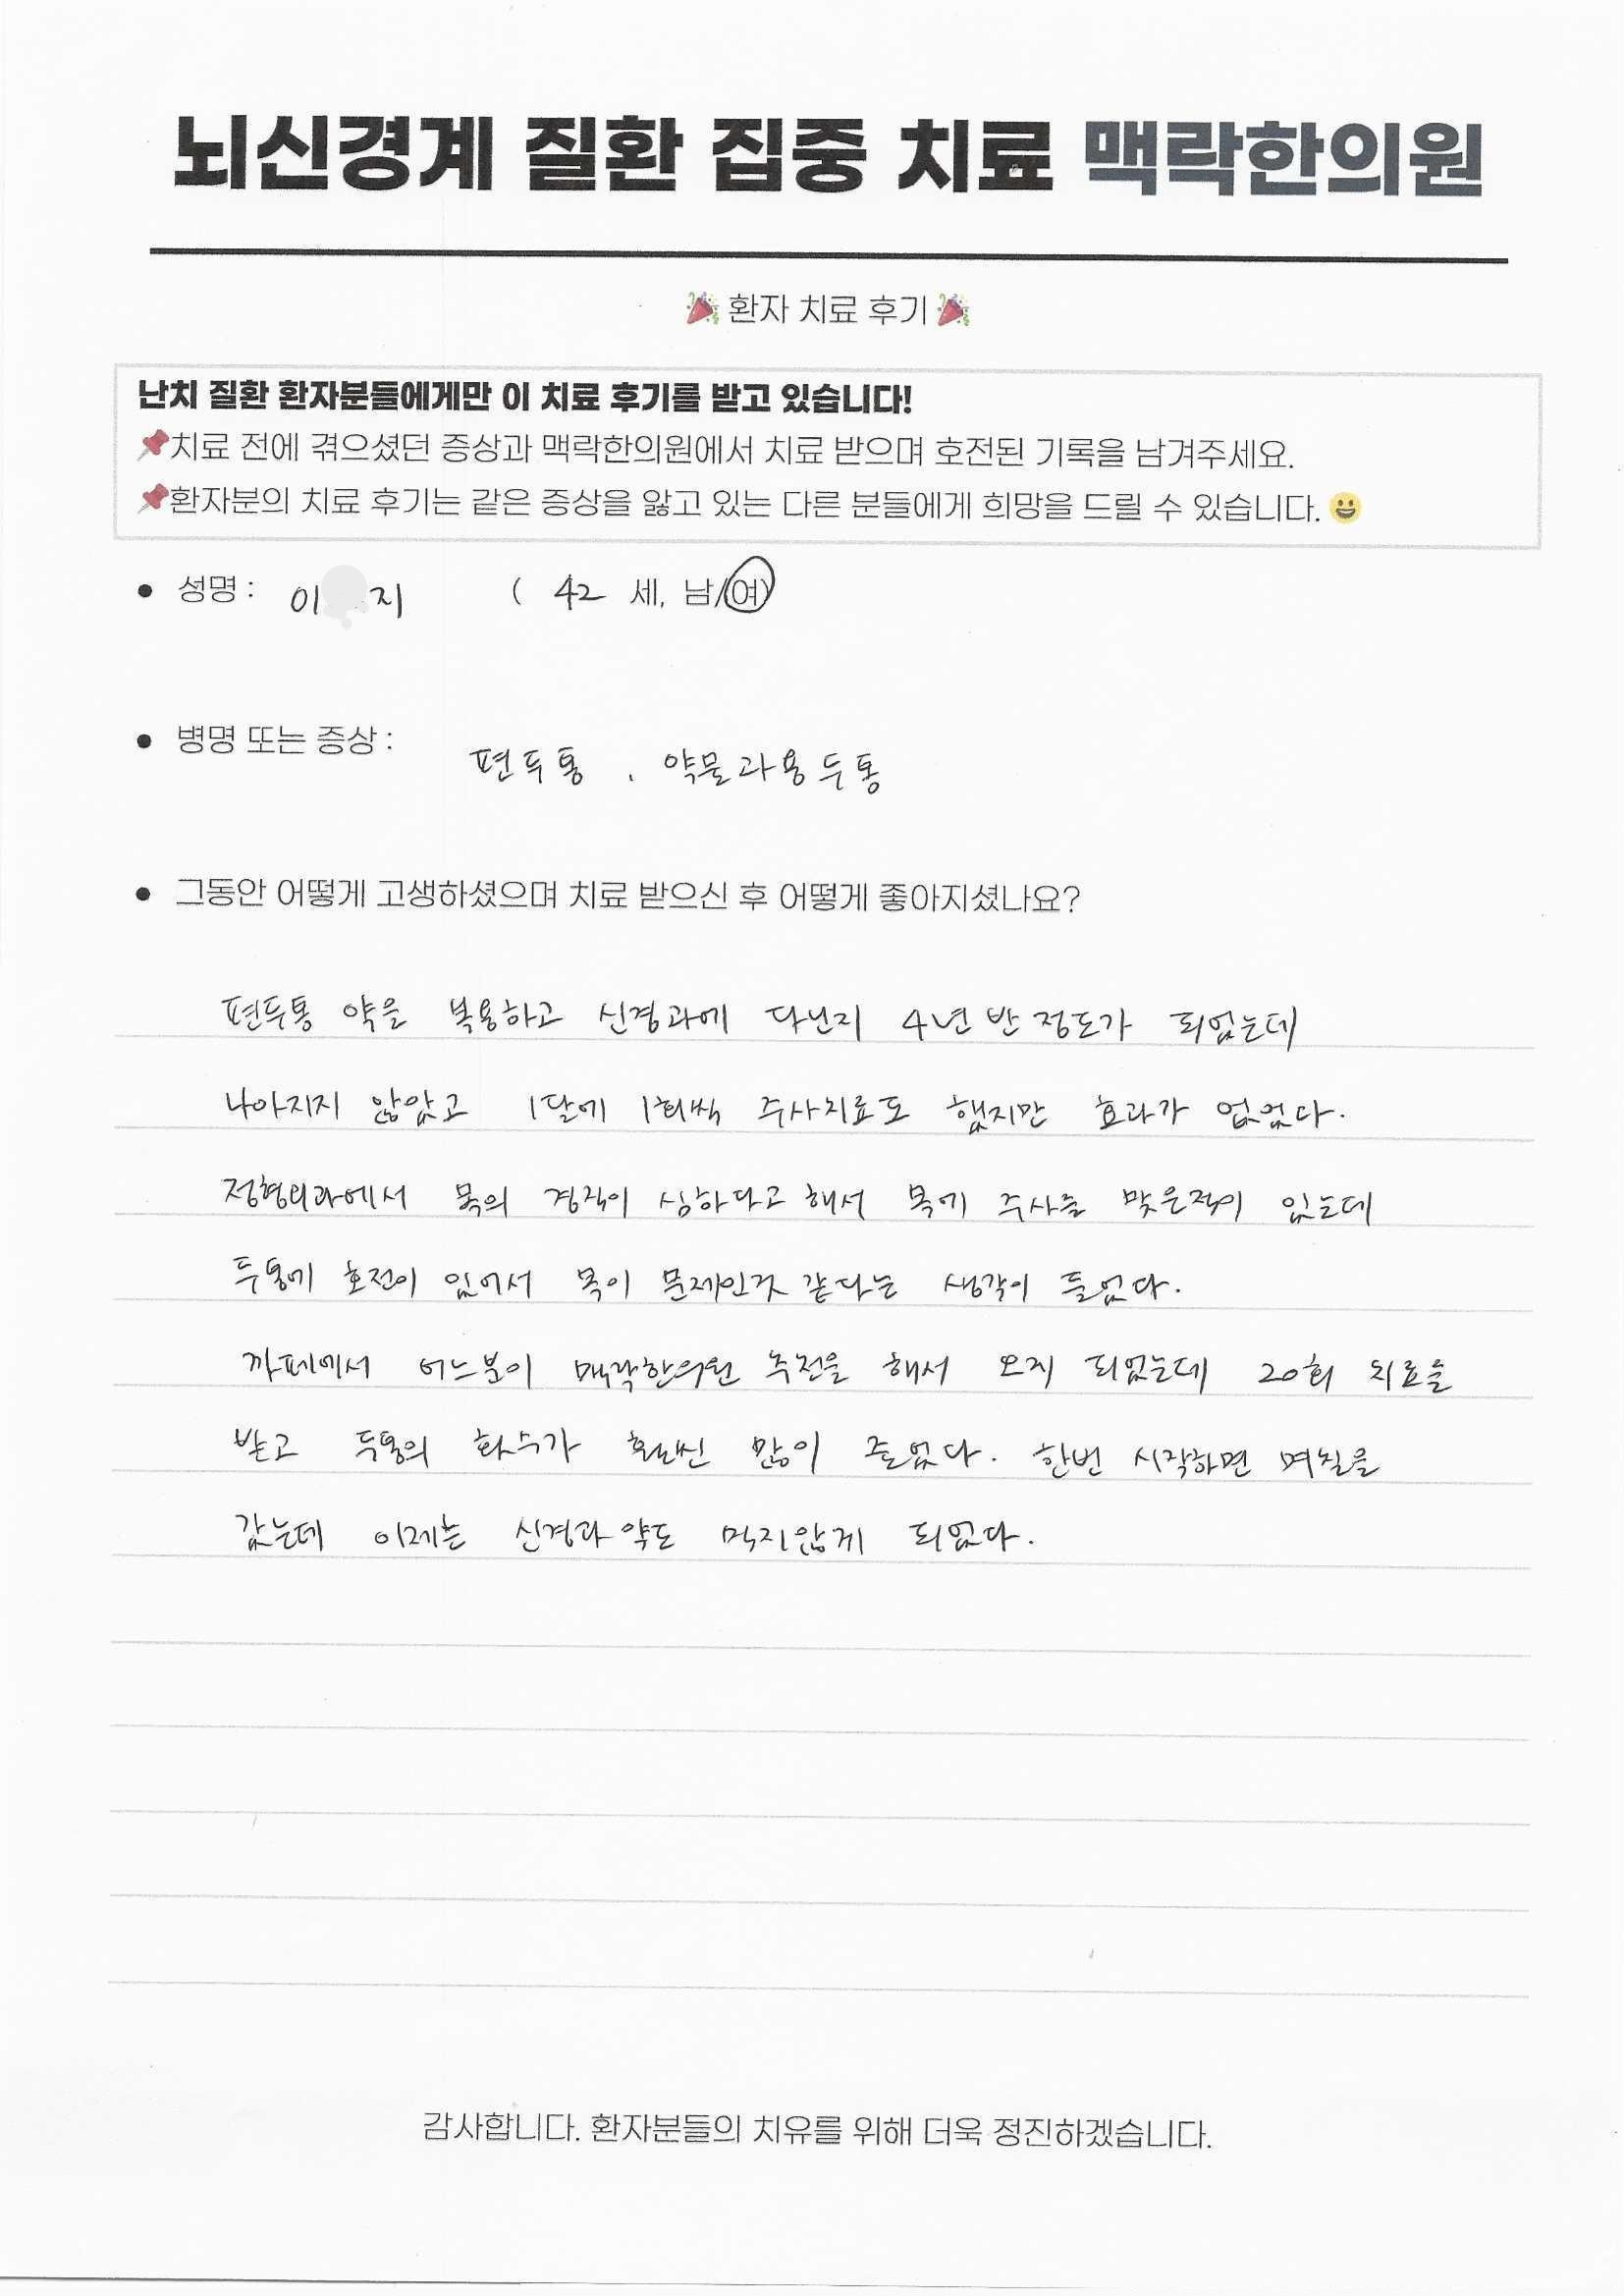 뇌신경계 질환 집중 치료 맥락한의원
🎉 환자 치료 후기 🎉
난치 질환 환자분들에게만 이 치료 후기를 받고 있습니다!
📌치료 전에 겪으셨던 증상과 맥락한의원에서 치료 받으며 호전된 기록을 남겨주세요.
📌환자분의 치료 후기는 같은 증상을 앓고 있는 다른 분들에게 희망을 드릴 수 있습니다. 😀
• 성명 : 이 지 ( 42 세, 남/여)
• 병명 또는 증상 : 편두통 , 약물과용두통
• 그동안 어떻게 고생하셨으며 치료 받으신 후 어떻게 좋아지셨나요?
편두통 약을 복용하고 신경과에 다닌지 4년 반 정도가 되었는데
나아지지 않았고 1달에 1회씩 주사치료도 했지만 효과가 없었다.
정형외과에서 목의 경직이 심하다고 해서 목에 주사를 맞은적이 있는데
두통에 호전이 있어서 목이 문제인것 같다는 생각이 들었다.
까페에서 어느분이 맥락한의원 추천을 해서 오게 되었는데 20회 치료를
받고 두통의 횟수가 훨씬 많이 줄었다. 한번 시작하면 며칠을
갔는데 이제는 신경과 약도 먹지않게 되었다.
감사합니다. 환자분들의 치유를 위해 더욱 정진하겠습니다.